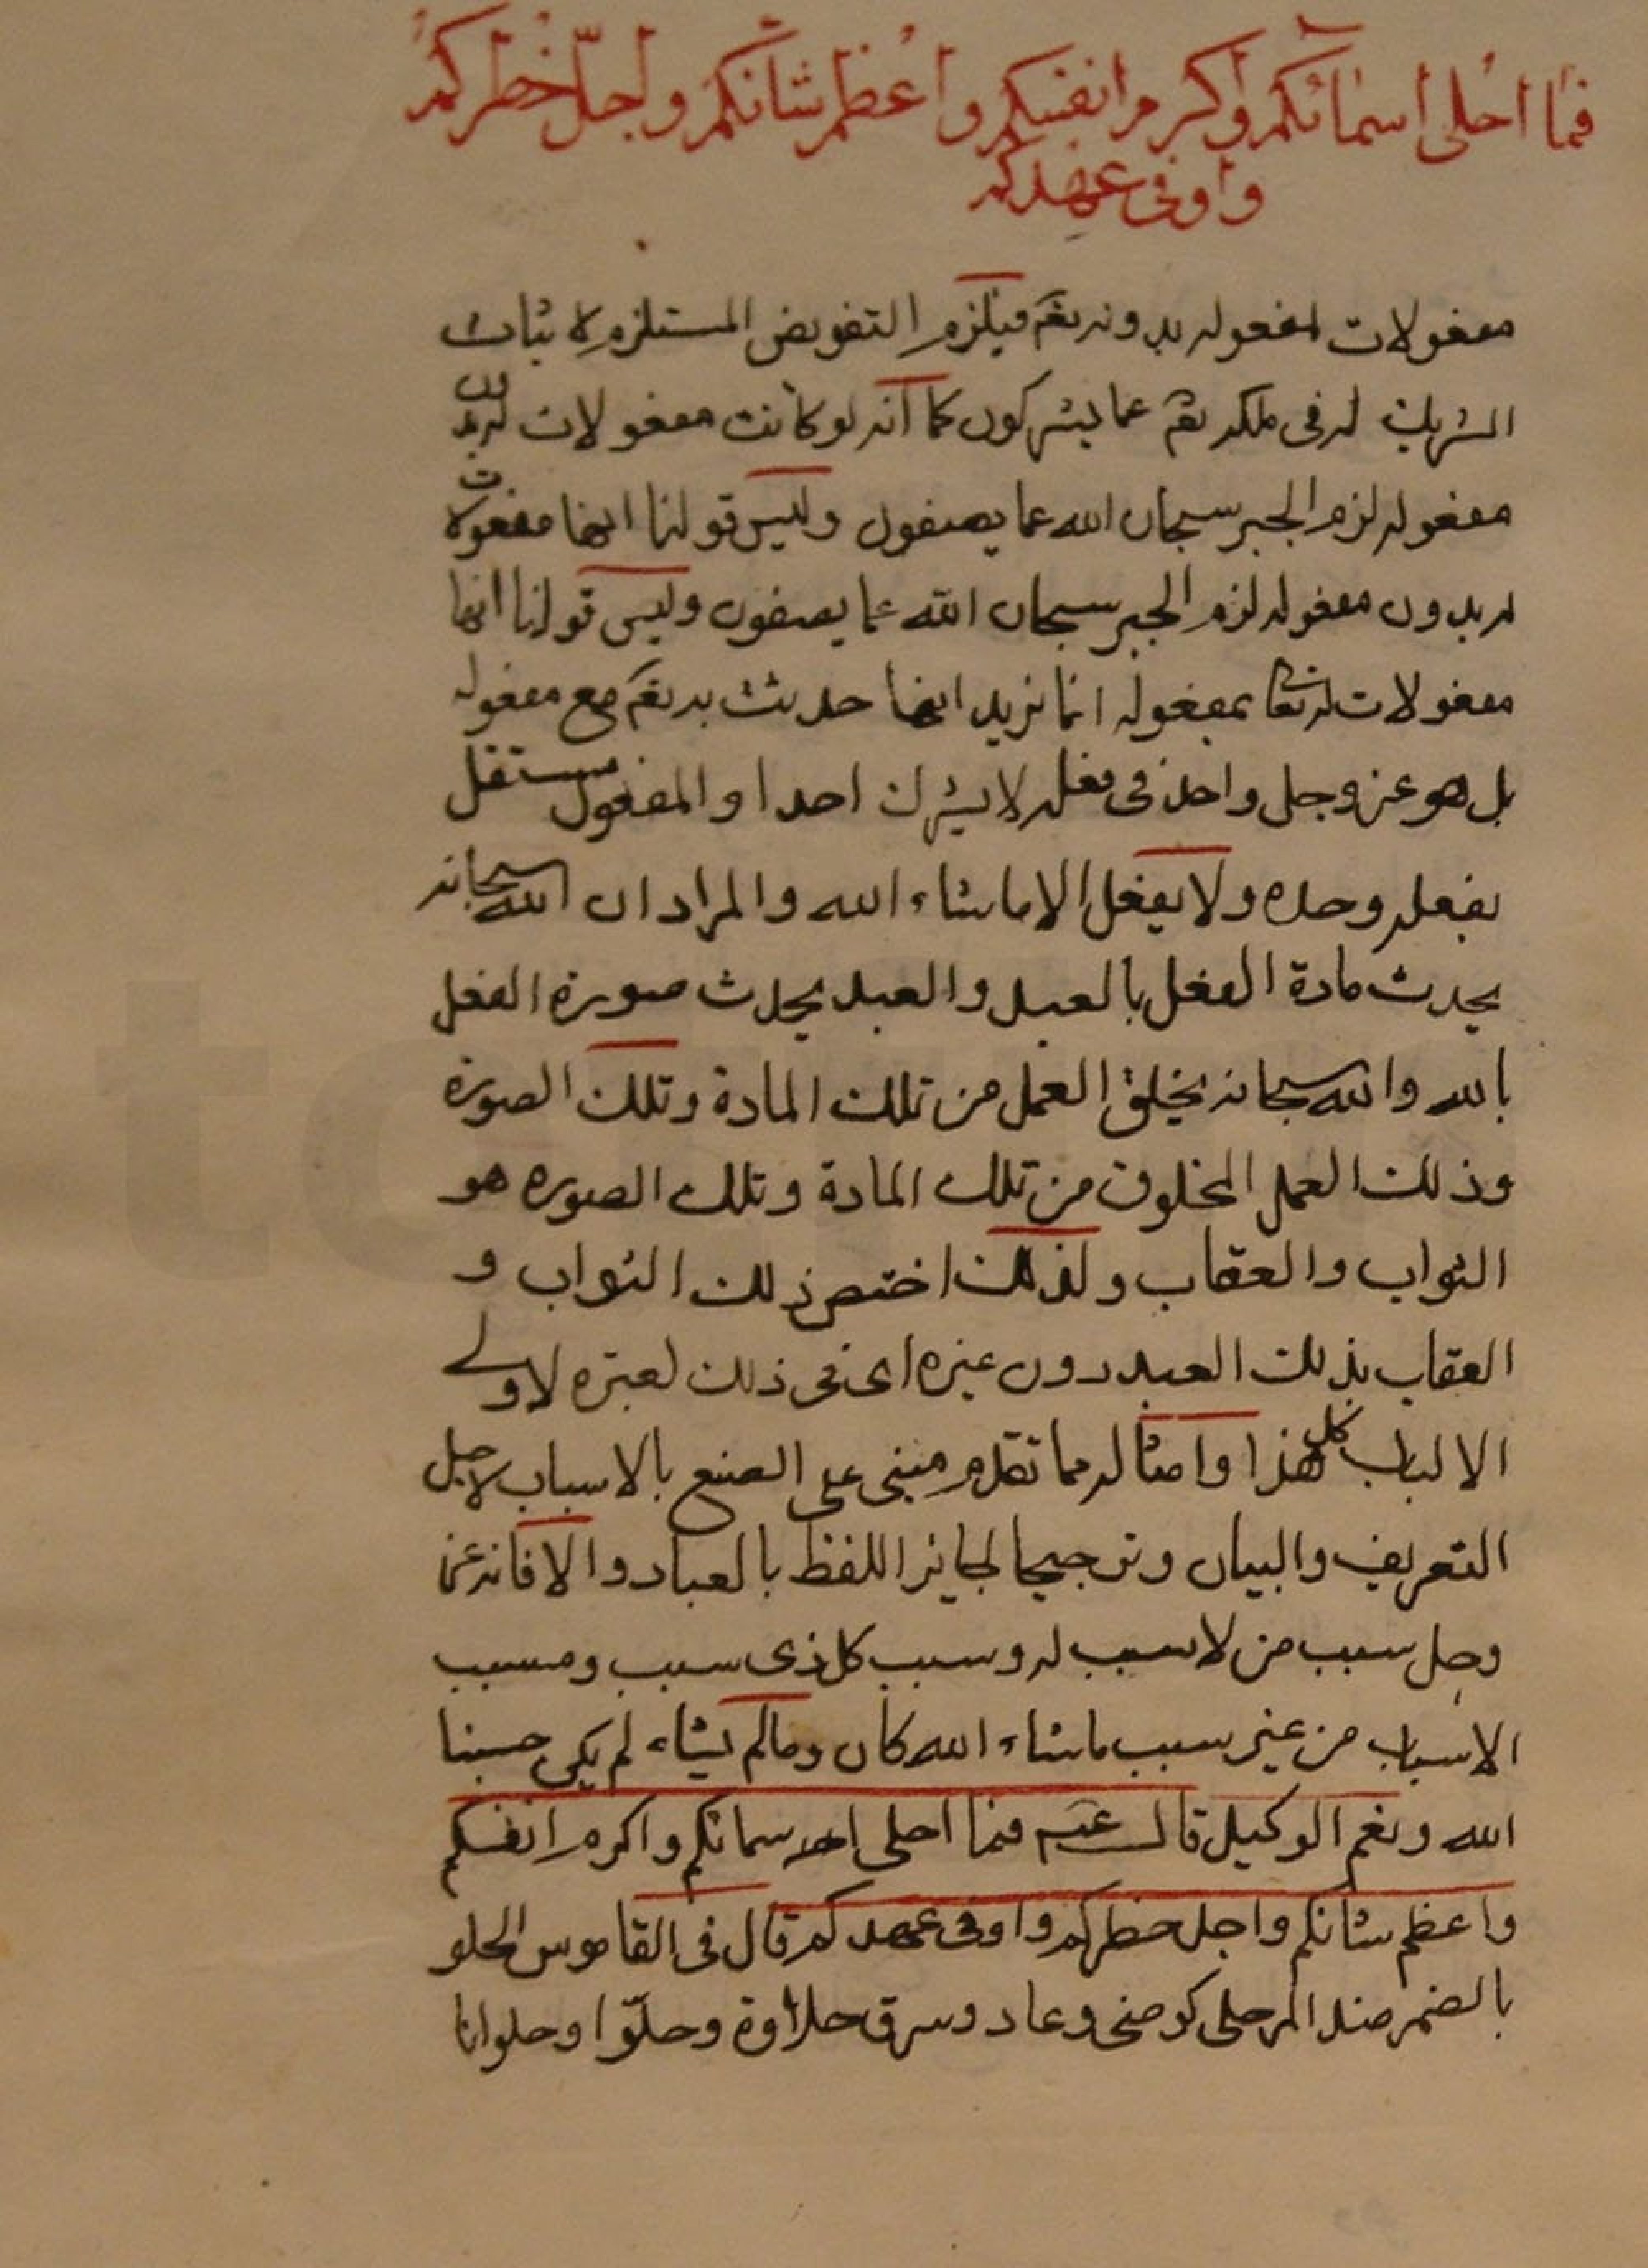 فما احلى اسمائكم واكرم انفسكم واعظم شانكم واجلّ خطركم
واوفى عهدكم
مفعولات لمفعوله بدونه تعم فيلزم التفويض المستلزم لاثبات
الشريك له فى ملكه تعم عما يشركون كما انه لو كانت مفعولات له بدون
مفعوله لزم الجبر سبحان الله عما يصفون وليس قولنا انها مفعولات
له بدون مفعوله لزم الجبر سبحان الله عما يصفون وليس قولنا انها
مفعولات له تعا بمفعوله انما نريد انها حدثت به تعم مع مفعوله
بل هو عز وجل واحد فى فعله لا يشرك احدا والمفعول مستقل
بفعله وحده ولا يفعل الا ما شاء الله والمراد ان الله سبحانه
يحدث مادة الفعل بالعبد والعبد يحدث صورة الفعل
بالله والله سبحانه يخلق العمل من تلك المادة وتلك الصورة
وذلك العمل المخلوق من تلك المادة وتلك الصوره هو
الثواب والعقاب ولذلك اختص ذلك الثواب و
العقاب بذلك العبد دون غيره ان فى ذلك لعبرة لاولى
الالباب كل هذا وامثاله مما تقدم مبنى على الصنع بالاسباب لاجل
التعريف والبيان وترجيحا لجايز اللفظ بالعباد والا فانه عز
وجل سبب من لا سبب له وسبب كل ذى سبب ومسبب
الاسباب من غير سبب ما شاء الله كان وما لم يشاء لم يكن حسبنا
الله ونعم الوكيل قال عم فما احلى اسمائكم واكرم انفسكم
واعظم شانكم واجل خطركم واوفى عهدكم قال فى القاموس الحلو
بالضم ضد المر حلى كرضى ودعا وسرو حلاوة وحلوّا وحلوانا